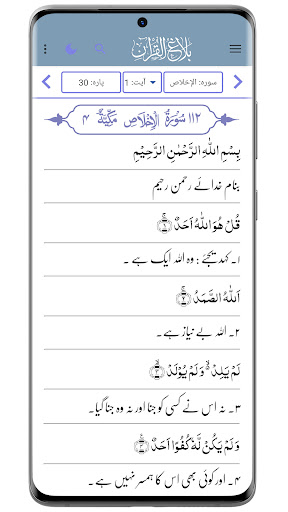 بلاغ القرآن
سورہ: الإخلاص
آیت: 1
پارہ: 30
۱۱۲ سُوْرَةُ الْاِخْلَاصِ مَكِّيَّةٌ ۴
بِسْمِ اللّٰهِ الرَّحْمٰنِ الرَّحِيْمِ
بنام خدائے رحمن رحیم
قُلْ هُوَ اللّٰهُ اَحَدٌ ۚ﴿۱﴾
۱۔ کہدیجئے: وہ اللہ ایک ہے ۔
اَللّٰهُ الصَّمَدُ ۚ﴿۲﴾
۲۔ اللہ بے نیاز ہے۔
لَمْ يَلِدْ ۙ وَ لَمْ يُوْلَدْ ۙ﴿۳﴾
۳۔ نہ اس نے کسی کو جنا اور نہ وہ جنا گیا۔
وَ لَمْ يَكُنْ لَّهٗ كُفُوًا اَحَدٌ ﴿۴﴾
۴۔ اور کوئی بھی اس کا ہمسر نہیں ہے ۔